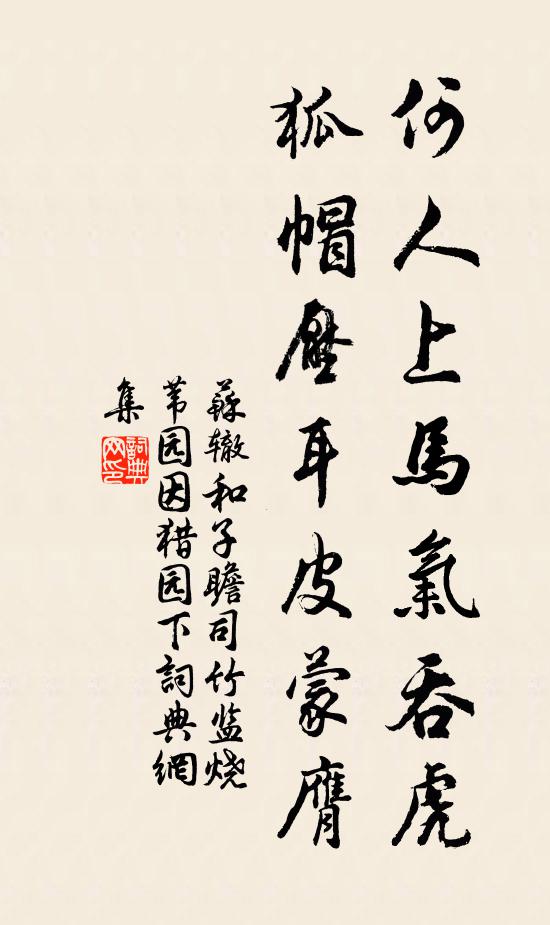 何人上馬氣吞虎
狐帽壓耳皮蒙膺
蘇辙和子瞻司竹监烧
苇园因猎园下詞典網
集
詞典
网印